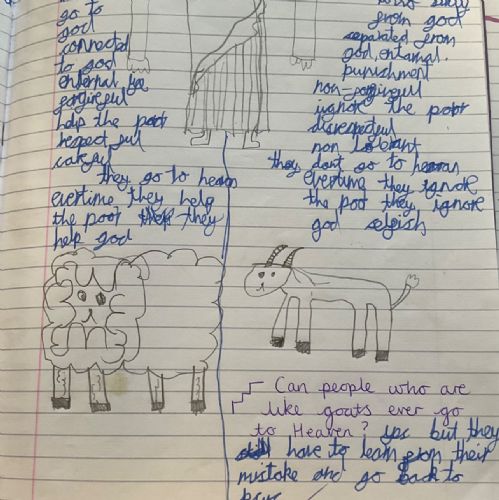 go to
god
connected
to god
enternal life
forgiveful
help the poor
respectful
careful
they go to heaven
evertime they help
the poor they
help god
from god
separated from
god, enternal
punishment
non-forgiveful
ignore the poor
disrespectful
non tolerant
they dont go to heaven
evertime they ignore
the poor they ignore
god selfish
Can people who are
like goats ever go
to Heaven? yes but they
have to learn from their
mistake and go back to